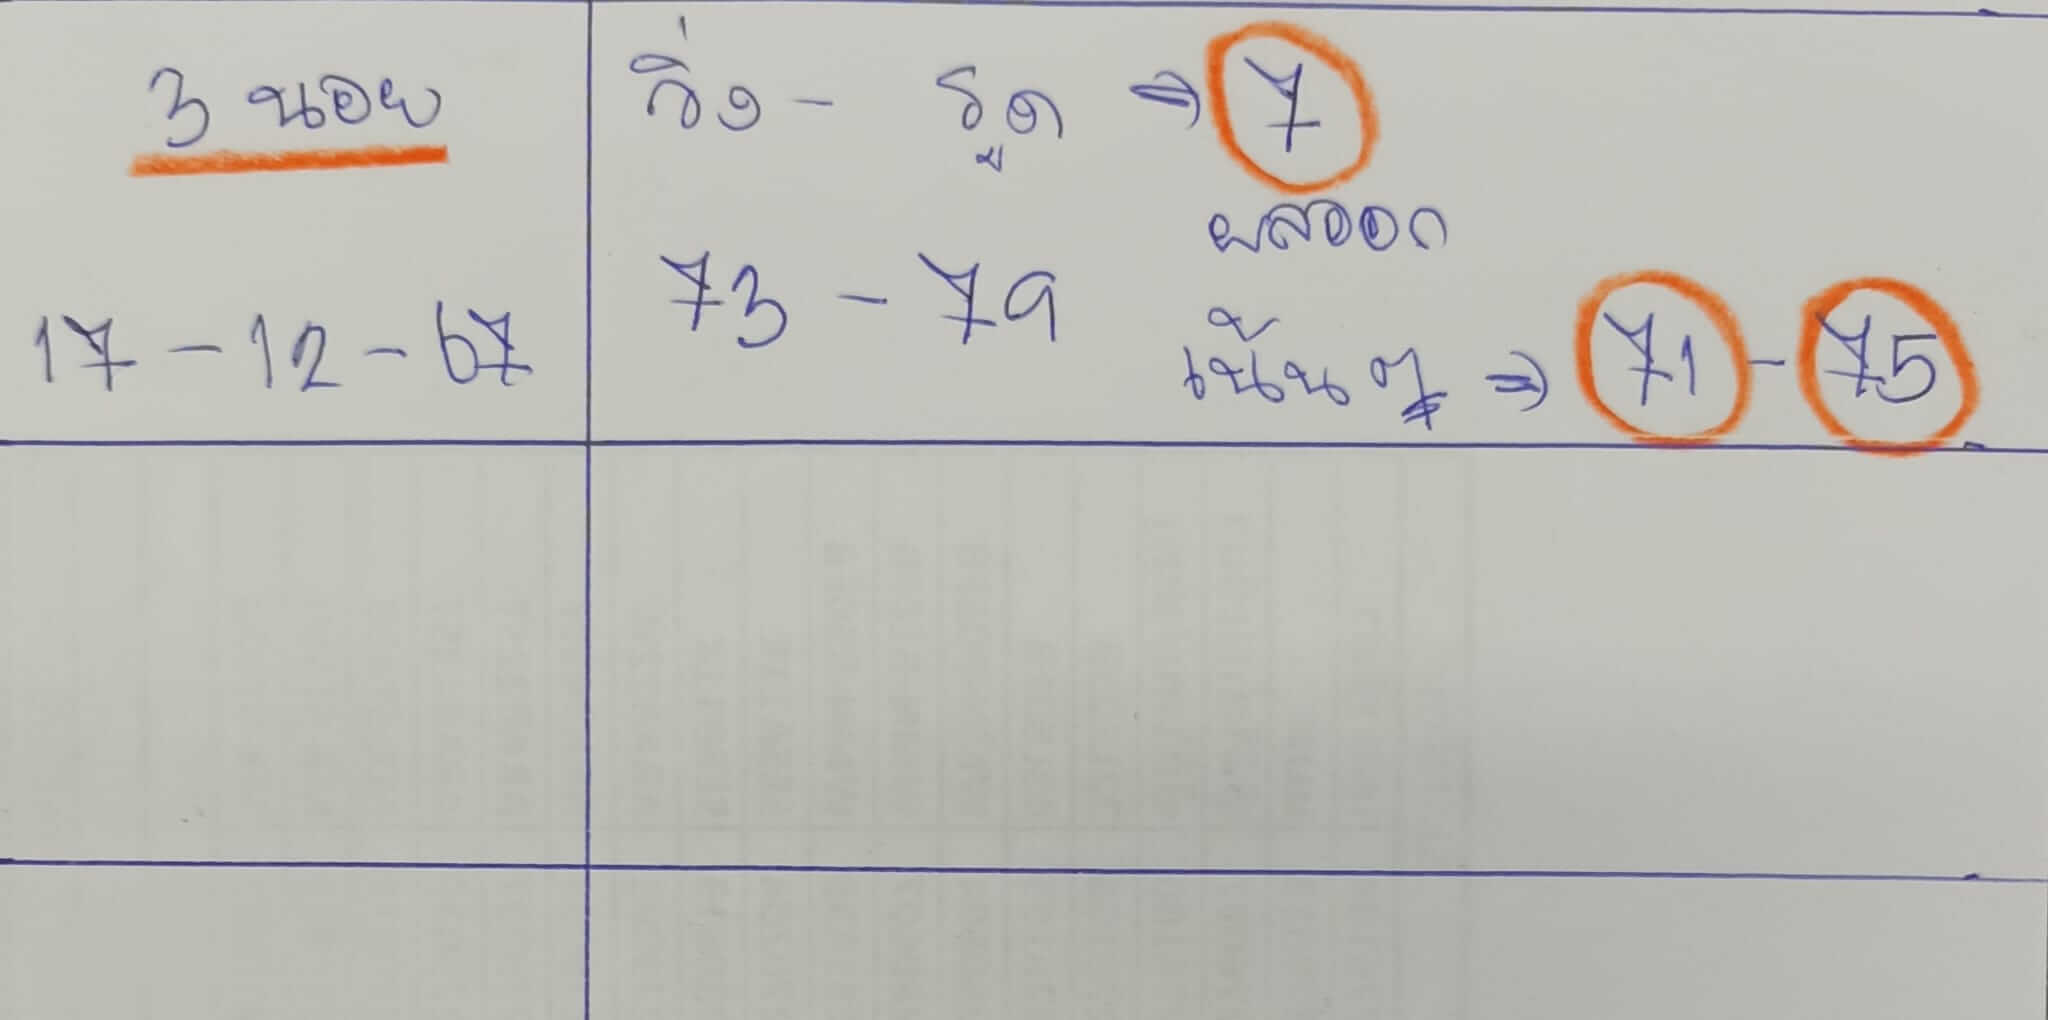 3 นอย
17 - 12 - 67
วิ่ง - รูด ⇒ 7
73 - 79
ผลออก
เน้นๆ ⇒ 71 - 75